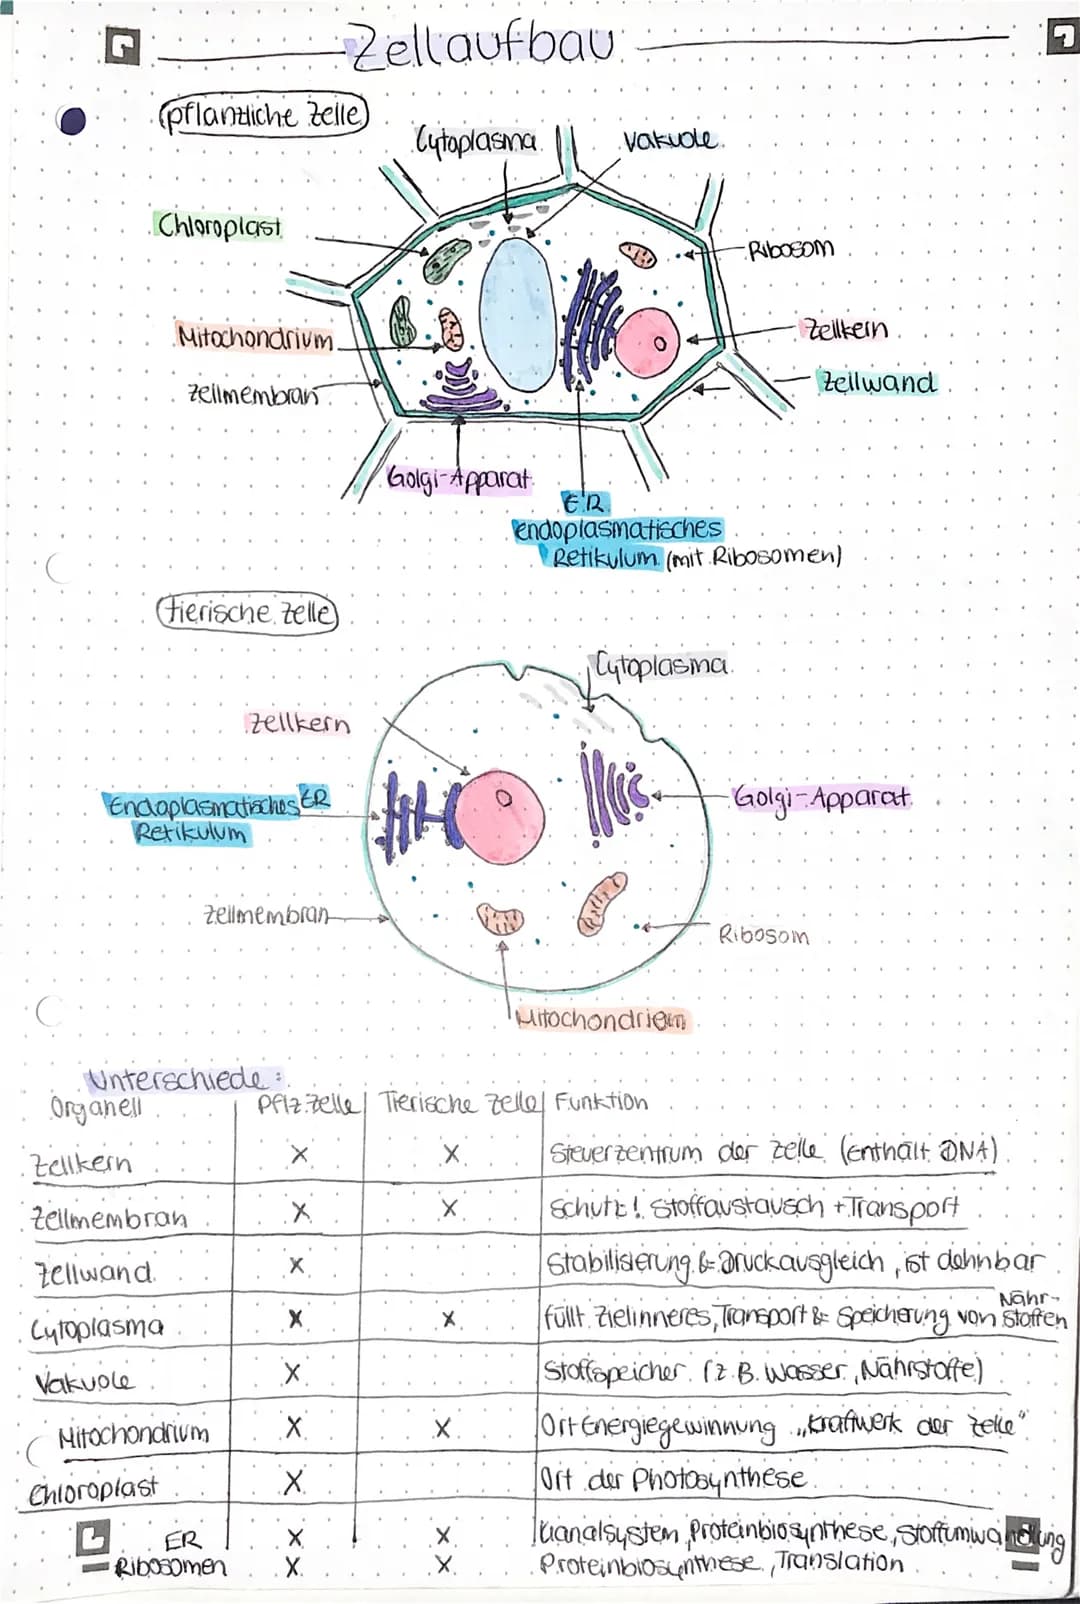 Zellaufbau
pflanzliche Zelle
Cytoplasma
Vakuole
Chloroplast
Ribosom
Mitochondrium
Zellkern
Zellmembran
Zellwand
Golgi-Apparat
ER
endoplasmatisches
Retikulum (mit Ribosomen)
tierische Zelle
Cytoplasma
Zellkern
Endoplasmatisches ER
Retikulum
Golgi-Apparat
Zellmembran
Ribosom
Mitochondrien
Unterschiede:
Organell Pflz. Zelle Tierische Zelle Funktion
Zellkern X X Steuerzentrum der Zelle (Enthält DNA)
Zellmembran X X Schutz! Stoffaustausch + Transport
Zellwand X Stabilisierung & Druckausgleich, ist dehnbar
Cytoplasma X X füllt Zielinneres, Transport & Speicherung von Nähr-
stoffen
Vakuole X Stoffspeicher (z.B. Wasser, Nährstoffe)
Mitochondrium X X Ort Energiegewinnung „Kraftwerk der Zelle"
Chloroplast X Ort der Photosynthese
ER X X Kanalsystem, Proteinbiosynthese, Stoffumwandlung
Ribosomen X X Proteinbiosynthese, Translation